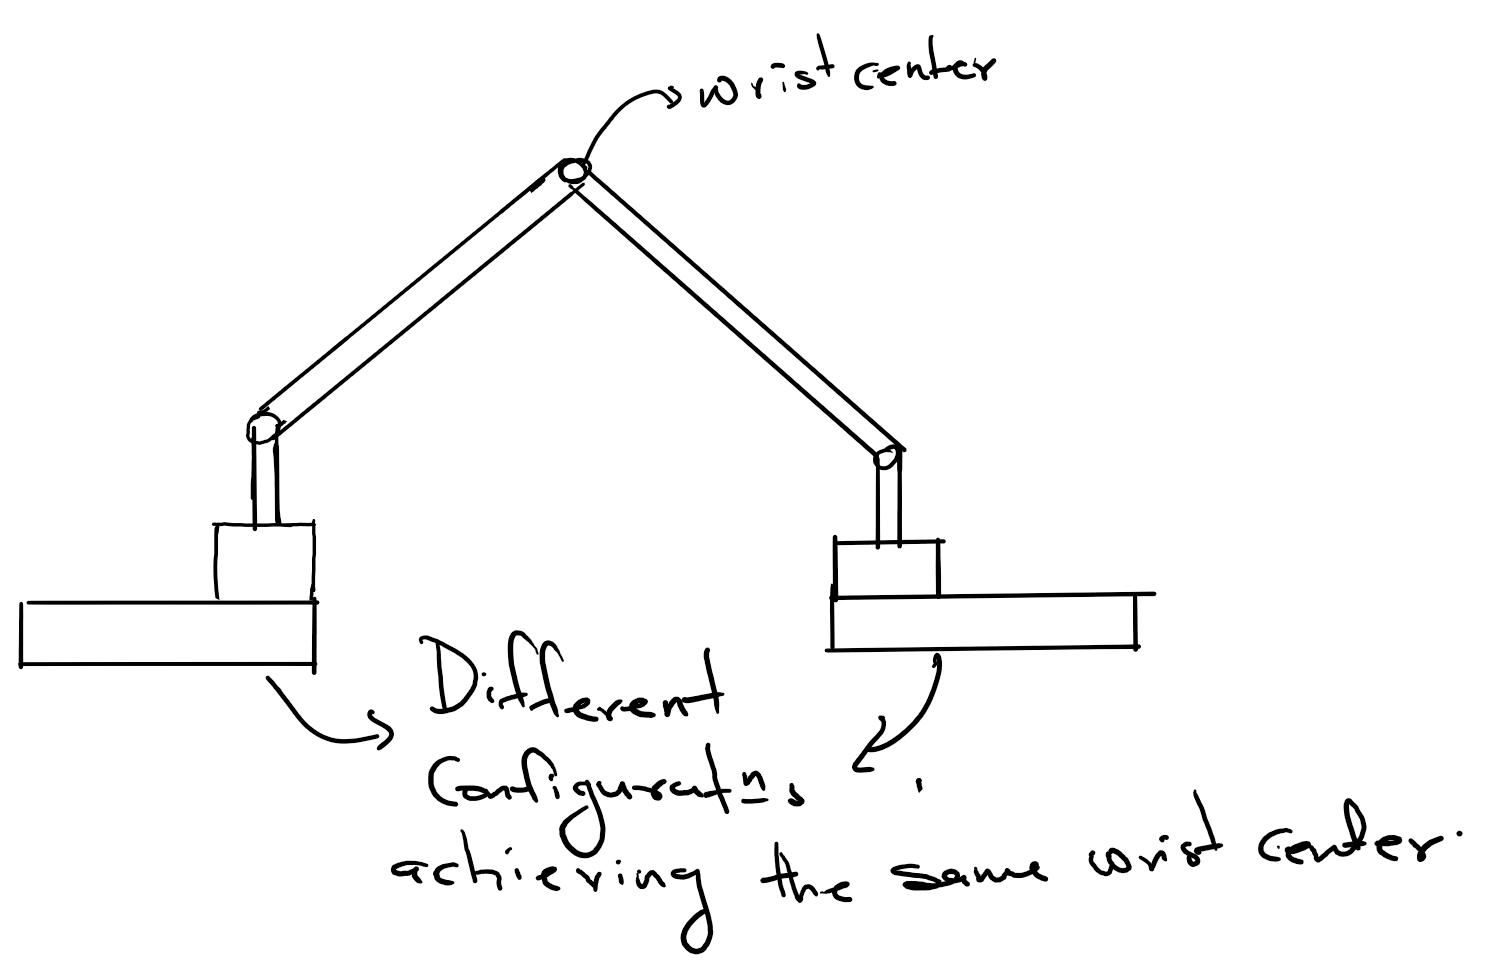 wrist center
Different
Configuratns
achieving the same wrist center.